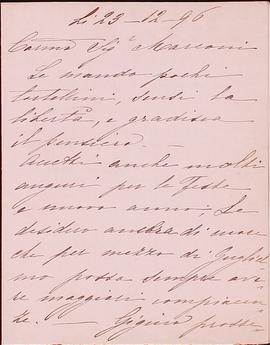 Li 23-12-96
Carma Sigra Marconi
Le mando pochi
tortellini, scusi la
libertà, e gradisca
il pensiero. —
Accetti anche molti
auguri per le Feste
e nuovo anno; Le
desidero ancora di cuore
che per mezzo di Gugliel
mo possa sempre ave
re maggiori compiacen
ze. — Gigino prosse-